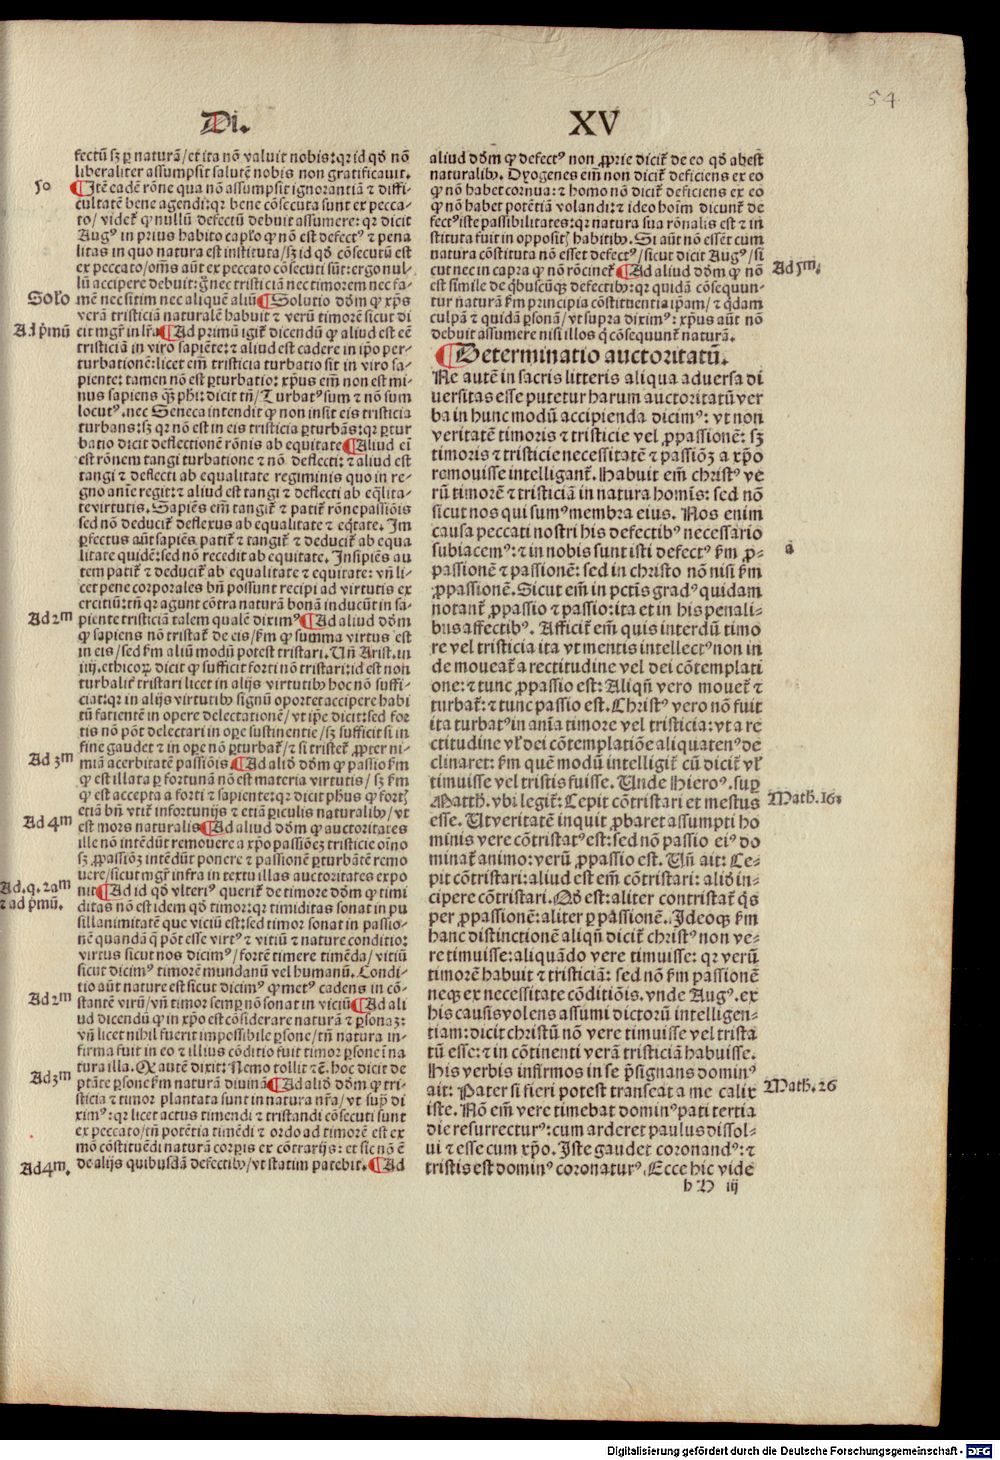 54
Di. XV
fectū sꝫ ꝑ naturā/et ita nō valuit nobis:qꝛ id qđ nō
liberaliter assumpsit salutē nobis non gratificauit.
5o
¶Itē eadē rōne qua nō assumpsit ignorantiā ⁊ diffi-
cultatē bene agendi:qꝛ bene cōsecuta sunt ex pecca-
to/ videt᷑ ꝙ nullū defectū debuit assumere: qꝛ dicit
Augꝰ in prius habito capło ꝙ nō est defectꝰ ⁊ pena
litas in quo natura est instituta/sꝫ id qđ cōsecutū est
ex peccato/om̄s aūt ex peccato cōsecuti sūt:ergo nul-
lū accipere debuit:g̊ nec tristiciā nec timorem nec fa-
Solo
mē nec sitim nec aliquē aliū ¶Solutio dōm ꝙ xp̄s
verā tristiciā naturalē habuit ⁊ verū timorē sicut di
Ad pͥmū
cit mgr̄ in lr̄a ¶Ad primū igit᷑ dicendū ꝙ aliud est eē
tristiciā in viro sapiēte:⁊ aliud est cadere in ip̄o per-
turbationē:licet em̄ tristicia turbatio sit in viro sa-
piente: tamen nō est ꝑturbatio: xp̄us em̄ non est mi-
nus sapiens qꝫ ph̄i:dicit tn̄/Turbatꝰ sum ⁊ nō sum
locutꝰ. nec Seneca intendit ꝙ non insit eis tristicia
turbans:sꝫ qꝛ nō est in eis tristicia ꝑturbās:qꝛ ꝑtur
batio dicit deflectionē rōnis ab equitate ¶Aliud em̄
est rōnem tangi turbatione ⁊ nō deflecti: ⁊ aliud est
tangi ⁊ deflecti ab equalitate regiminis quo in re-
gno anīe regit᷑:⁊ aliud est tangi ⁊ deflecti ab eq̄lita-
te virtutis. Sapiēs em̄ tangit᷑ ⁊ patit᷑ rōne passiōis
sed nō deducit᷑ deflexus ab equalitate ⁊ eq̄tate. Im
ꝑfectus aūt sapiēs patit᷑ ⁊ tangit᷑ ⁊ deducit᷑ ab equa
litate quidē:sed nō recedit ab equitate. Insipiēs au
tem patit᷑ ⁊ deducit᷑ ab equalitate ⁊ equitate: vn̄ li-
cet pene corporales bn̄ possunt recipi ad virtutis ex
ercitiū:tn̄ qꝛ agunt cōtra naturā bonā inducūt in sa-
Ad 2m
piente tristiciā talem qualē diximꝰ ¶Ad aliud dōm
ꝙ sapiens nō tristat᷑ de eis/ẜm ꝙ summa virtus est
in eis/sed ẜm aliū modū potest tristari. Vn̄ Arist. in
iiij. ethicoꝝ dicit ꝙ sufficit forti nō tristari:id est non
turbalit᷑ tristari licet in alijs virtutibꝫ hoc nō suffi-
ciat:qꝛ in alijs virtutibꝫ signū oportet accipere habi
tū fatientē in opere delectationē/ vt ip̄e dicit:sed for
tis nō pōt delectari in oꝑe sustinentie/sꝫ sufficit si in
fine gaudet ⁊ in oꝑe nō ꝑturbat᷑/⁊ si tristet᷑ ꝓpter ni-
Ad 3m
miā acerbitatē passiōis ¶Ad aliđ dōm ꝙ passio ẜm
ꝙ est illata ꝑ fortunā nō est materia virtutis/ sꝫ ẜm
ꝙ est accepta a forti ⁊ sapiente:qꝛ dicit ph̄us ꝙ fortꝭ
etiā bn̄ vtit᷑ infortunijs ⁊ etiā ꝑiculis naturalibꝫ/vt
Ad 4m
est mors naturalis ¶Ad aliud dōm ꝙ auctoritates
ille nō intēdūt remouere a xp̄o passiōeꝫ tristicie oīno
sꝫ ꝓpassiōꝫ intēdūt ponere ⁊ passionē ꝑturbātē remo
uere/sicut mgr̄ infra in textu illas auctoritates expo
Ad.q.2am
nit ¶Ad id qđ vlteriꝰ querit᷑ de timore dōm ꝙ timi
⁊ ad pͥmū.
ditas nō est idem qđ timor:qꝛ timiditas sonat in pu
sillanimitatē que viciū est:sed timor sonat in passio-
nē quandā q̄ pōt esse virtꝰ ⁊ vitiū ⁊ nature conditio:
virtus sicut nos dicimꝰ/fortē timere timēda/ vitiū
sicut dicimꝰ timorē mundanū vel humanū. Condi-
tio aūt nature est sicut dicimꝰ ꝙ metꝰ cadens in cō-
Ad 2m
stantē virū/vn̄ timor semꝑ nō sonat in viciū ¶Ad ali
ud dicendū ꝙ in xp̄o est cōsiderare naturā ⁊ ꝑsonaꝫ:
vn̄ licet nihil fuerit impossibile ꝑsone/tn̄ natura in-
firma fuit in eo ⁊ illius cōditio fuit timor ꝑsone in na
tura illa. Q autē dixit:Nemo tollit ⁊c̄. hoc dicit de
Ad 3m
ptāte ꝑsone ẜm naturā diuinā ¶Ad aliđ dōm ꝙ tri-
sticia ⁊ timor plantata sunt in natura nr̄a/ vt supͣ di
ximꝰ:qꝛ licet actus timendi ⁊ tristandi cōsecuti sunt
ex peccato/tn̄ potētia timēdi ⁊ ordo ad timorē est ex
mō cōstituēdi naturā corꝑis ex cōtrarijs: et sic nō ē
Ad 4m.
de alijs quibusdā defectibꝫ/vt statim patebit. ¶Ad
aliud dōm ꝙ defectꝰ non ꝓprie dicit᷑ de eo qđ abest
naturalibꝫ. Dyogenes em̄ non dicit᷑ deficiens ex eo
ꝙ nō habet cornua:⁊ homo nō dicit᷑ deficiens ex eo
ꝙ nō habet potētiā volandi:⁊ ideo hoīm dicunt᷑ de
fectꝰ iste passibilitates:qꝛ natura sua rōnalis est ⁊ in
stituta fuit in oppositꝭ habitibꝫ. Si aūt nō essēt cum
natura cōstituta nō esset defectꝰ/sicut dicit Augꝰ/si
Ad 5m.
cut nec in capra ꝙ nō rōcinet᷑ ¶Ad aliud dōm ꝙ nō
est simile de qͥbuscūqꝫ defectibꝫ:qꝛ quidā cōsequun-
tur naturā ẜm principia cōstituentia ip̄am/ ⁊ qͥdam
culpā ⁊ quidā ꝑsonā/vt supra diximꝰ: xp̄us aūt nō
debuit assumere nisi illos qͥ cōsequunt᷑ naturā.
¶Determinatio auctoritatū.
Ne autē in sacris litteris aliqua aduersa di
uersitas esse putetur harum auctoritatū ver
ba in hunc modū accipienda dicimꝰ: vt non
veritatē timoris ⁊ tristicie vel ꝓpassionē: sꝫ
timoris ⁊ tristicie necessitatē ⁊ passiōꝫ a xp̄o
remouisse intelligant᷑. Habuit em̄ christꝰ ve
rū timorē ⁊ tristiciā in natura homīs: sed nō
sicut nos qui sumꝰ membra eius. Nos enim
causa peccati nostri his defectibꝰ necessario
a
subiacemꝰ:⁊ in nobis sunt isti defectꝰ ẜm ꝓ-
passionē ⁊ passionē: sed in christo nō nisi ẜm
ꝓpassionē. Sicut em̄ in pctīs gradꝰ quidam
notant᷑ ꝓpassio ⁊ passio:ita et in his penali-
bus affectibꝰ. Afficit᷑ em̄ quis interdū timo
re vel tristicia ita vt mentis intellectꝰ non in
de moueat᷑ a rectitudine vel dei cōtemplati
one:⁊ tunc ꝓpassio est:Aliqn̄ vero mouet᷑ ⁊
turbat᷑:⁊ tunc passio est. Christꝰ vero nō fuit
ita turbatꝰ in anīa timore vel tristicia:vt a re
ctitudine vł dei cōtemplatiōe aliquatenꝰ de
clinaret: ẜm quē modū intelligit᷑ cū dicit᷑ vł
timuisse vel tristis fuisse. Unde Hieroꝰ. suꝑ
Math. 16.
Matth. vbi legit᷑: Cepit cōtristari et mestus
esse. Ut veritatē inquit ꝓbaret assumpti ho
minis vere cōtristatꝰ est:sed nō passio eiꝰ do
minat᷑ animo:verū ꝓpassio est. Vn̄ ait: Ce-
pit cōtristari:aliud est em̄ cōtristari: aliđ in-
cipere cōtristari. Qđ est:aliter contristat᷑ qͥs
per ꝓpassionē:aliter ꝑ passionē. Ideoqꝫ ẜm
hanc distinctionē aliqn̄ dicit᷑ christꝰ non ve-
re timuisse:aliquādo vere timuisse: qꝛ verū
timorē habuit ⁊ tristiciā: sed nō ẜm passionē
neqꝫ ex necessitate cōditiōis. vnde Augꝰ. ex
his causis volens assumi dictorū intelligen-
tiam:dicit christū nō vere timuisse vel trista
tū esse:⁊ in cōtinenti verā tristiciā habuisse.
His verbis infirmos in se p̄signans dominꝰ
Math. 26
ait: Pater si fieri potest transeat a me calix
iste. Nō em̄ vere timebat dominꝰ pati tertia
die resurrecturꝰ:cum arderet paulus dissol-
ui ⁊ esse cum xp̄o. Iste gaudet coronandꝰ:⁊
tristis est dominꝰ coronaturꝰ. Ecce hic vide
h D iij
Digitalisierung gefördert durch die Deutsche Forschungsgemeinschaft - DFG